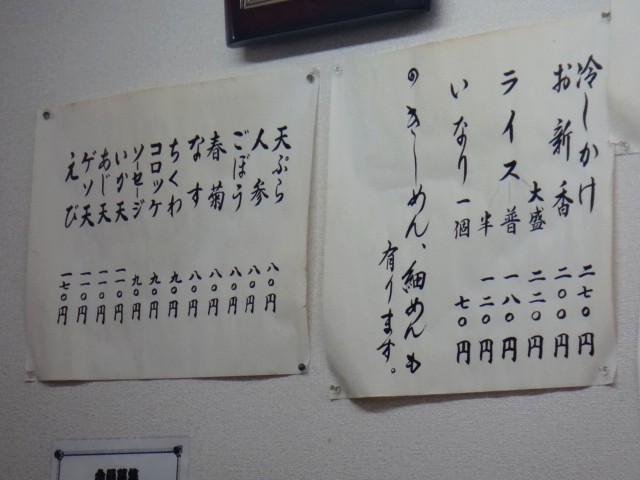 冷しかけ 二七〇円
お新香 二〇〇円
大盛 二二〇円
ライス 普 一八〇円
半 一二〇円
いなり 一個 七〇円
のきしめん、細めんも
有ります。
天ぷら 八〇円
人参 八〇円
ごぼう 八〇円
春菊 八〇円
なす 八〇円
ちくわ 九〇円
コロッケ 九〇円
ソーセージ 九〇円
いか天 一一〇円
あじ天 一一〇円
ゲソ天 一一〇円
えび 一七〇円